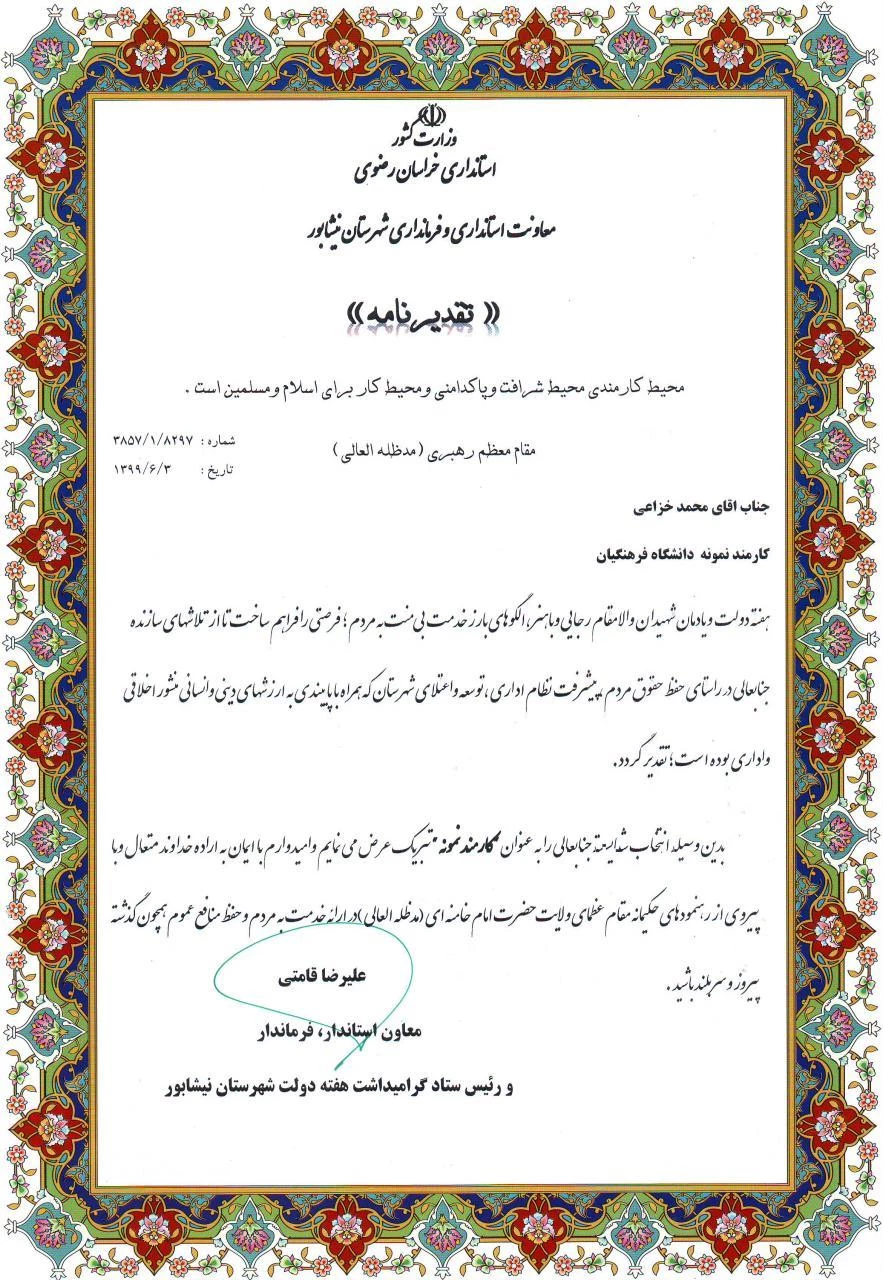 وزارت کشور
استانداری خراسان رضوی
معاونت استانداری و فرمانداری شهرستان نیشابور
« تقدیرنامه »
محیط کارمندی محیط شرافت و پاکدامنی و محیط کار برای اسلام و مسلمین است .
مقام معظم رهبری (مدظله العالی)
شماره : ۳۸۵۷/۱/۸۲۹۷
تاریخ : ۱۳۹۹/۶/۳
جناب اقای محمد خزاعی
کارمند نمونه دانشگاه فرهنگیان
هفته دولت و یادمان شهیدان والامقام رجایی و باهنر، الگوهای بارز خدمت بی منت به مردم ؛ فرصتی را فراهم ساخت تا از تلاشهای سازنده
جنابعالی در راستای حفظ حقوق مردم ، پیشرفت نظام اداری ، توسعه و اعتلای شهرستان که همراه با پایبندی به ارزشهای دینی و انسانی منشور اخلاقی
و اداری بوده است ؛ تقدیر گردد .
بدین وسیله انتخاب شایسته جنابعالی را به عنوان "کارمند نمونه" تبریک عرض می نمایم و امیدوارم با ایمان به اراده خداوند متعال و با
پیروی از رهنمودهای حکیمانه مقام عظمای ولایت حضرت امام خامنه ای (مدظله العالی) در ارائه خدمت به مردم و حفظ منافع عموم همچون گذشته
پیروز و سربلند باشید .
علیرضا قامتی
معاون استاندار، فرماندار
و رئیس ستاد گرامیداشت هفته دولت شهرستان نیشابور